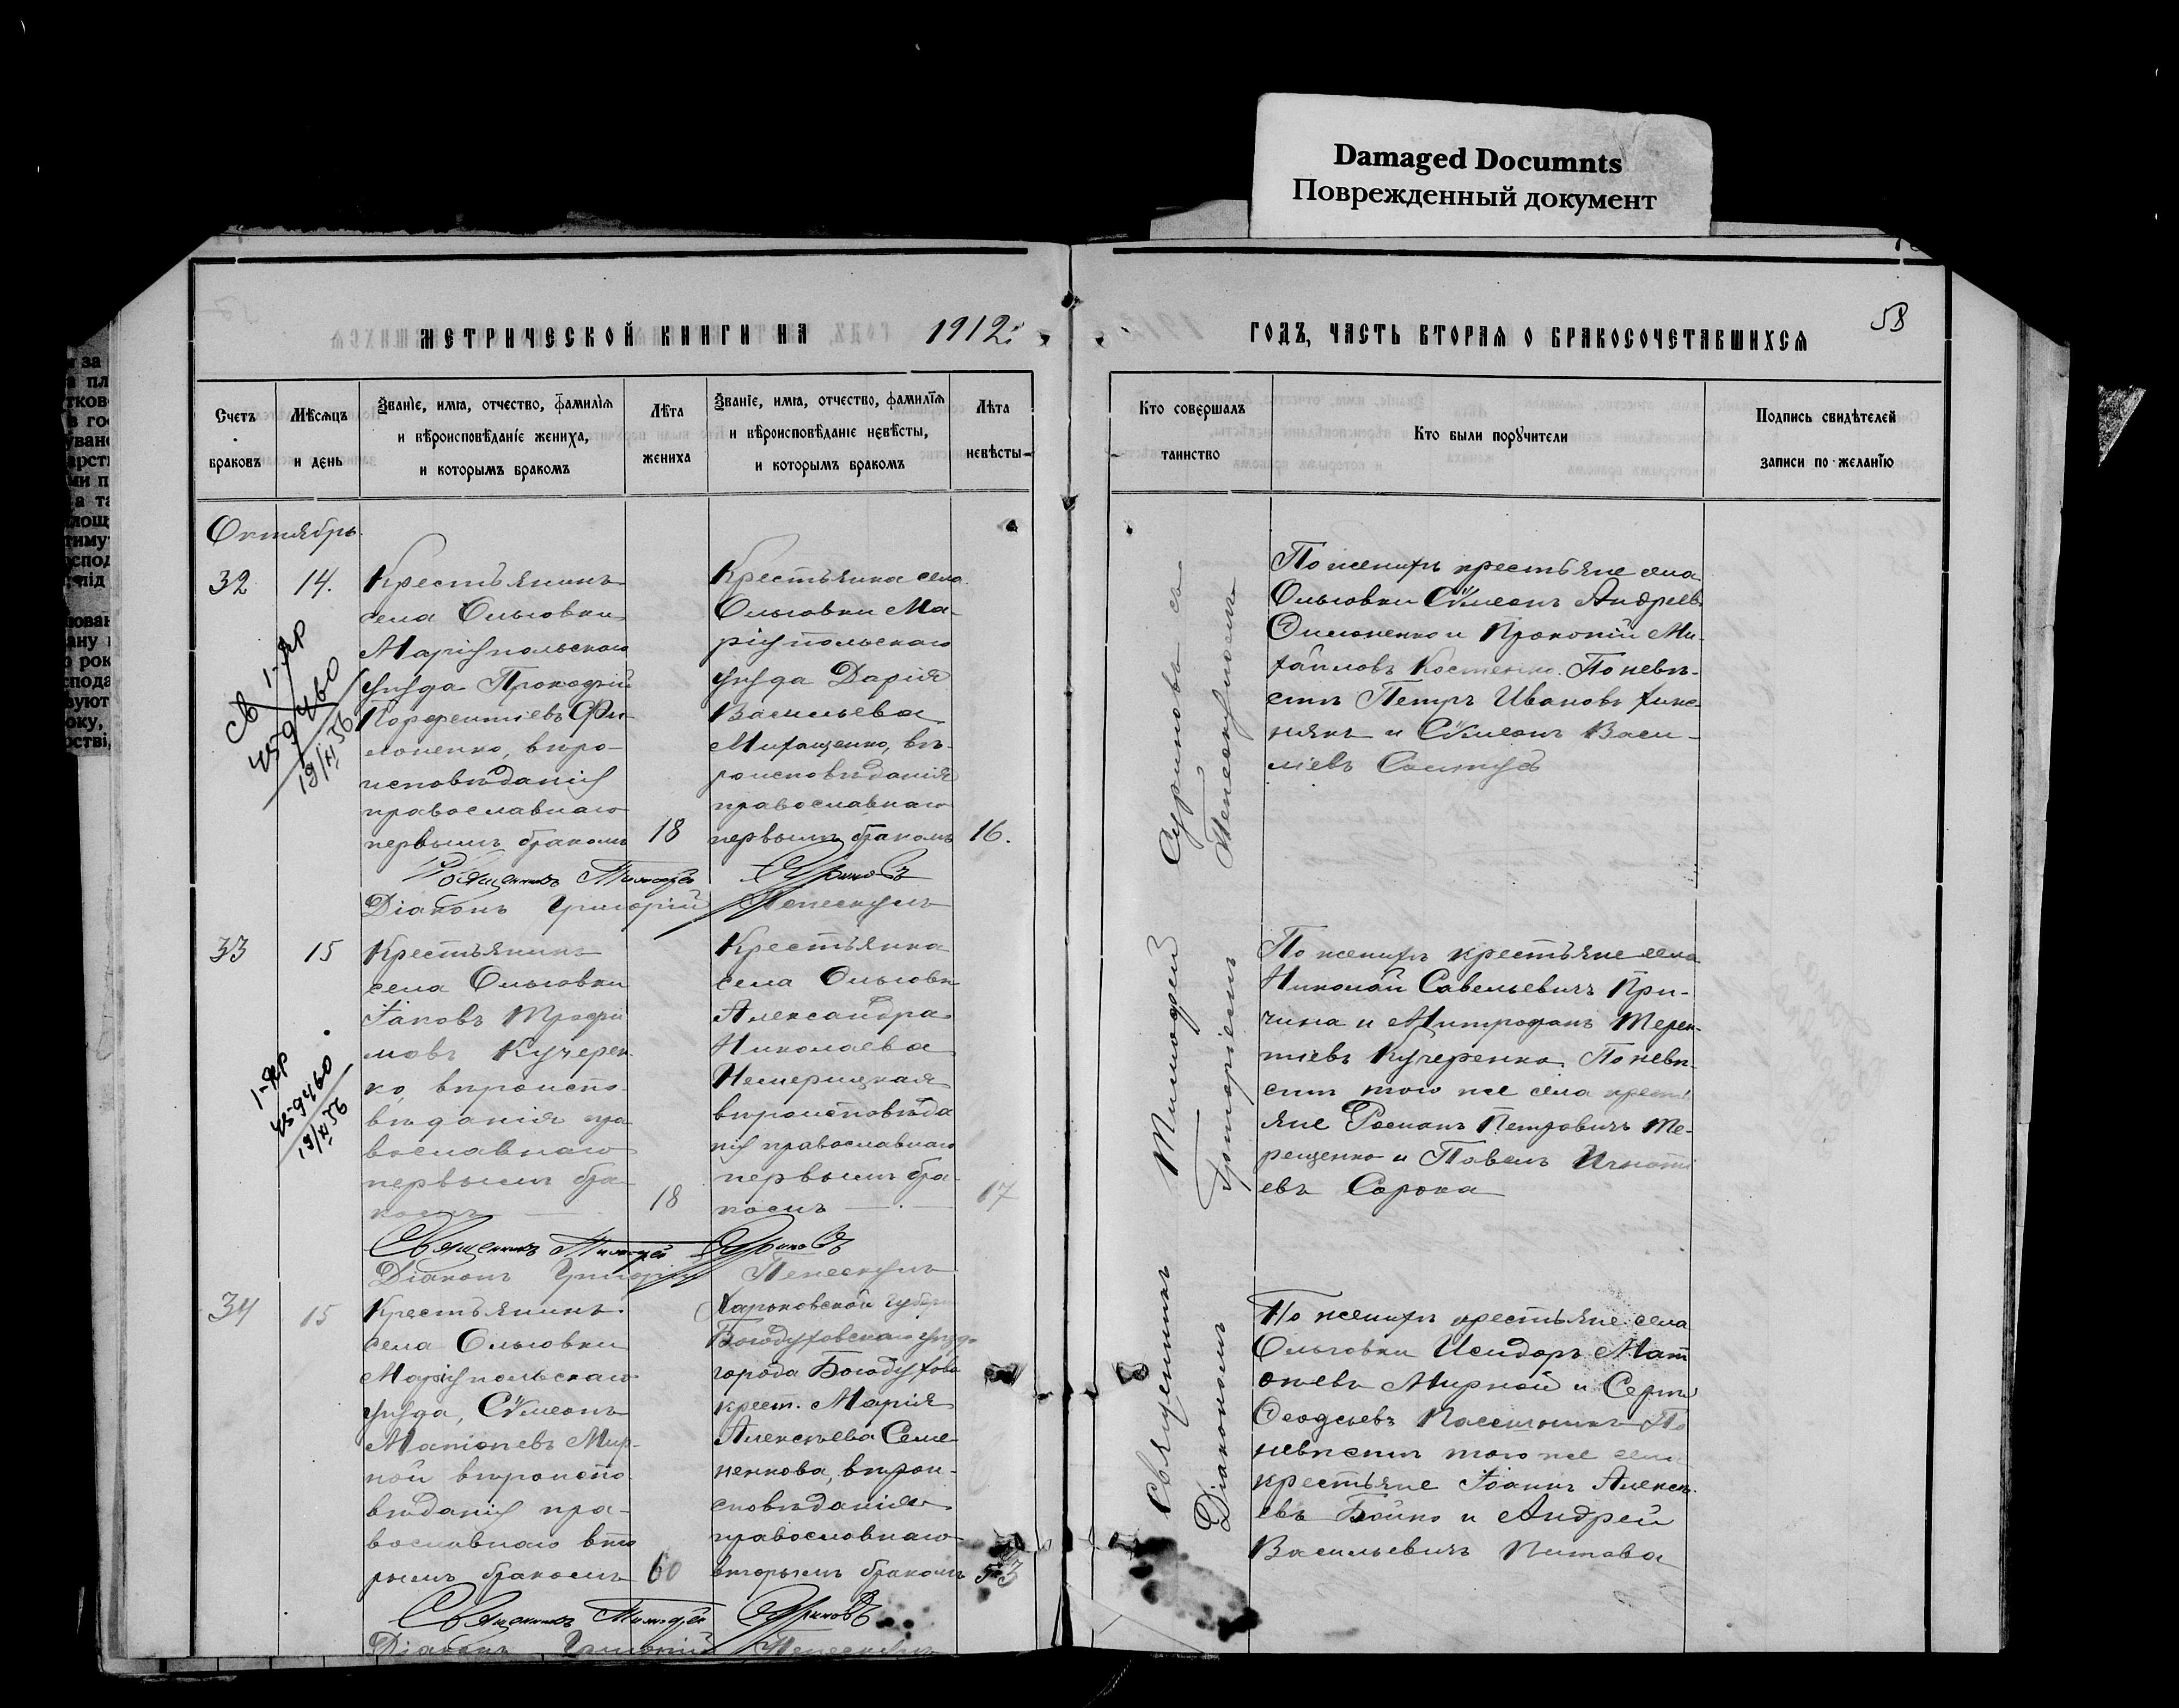 Damaged Documnts
Поврежденный документ
МЕТРИЧЕСКОЙ КНИГИ НА 1912
ГОДЪ, ЧАСТЬ ВТОРАЯ О БРАКОСОЧЕТАВШИХСЯ
58
Счетъ
браковъ
Мѣсяцъ
и день
Званіе, имя, отчество, фамилія
и вѣроисповѣданіе жениха,
и которымъ бракомъ
Лѣта
жениха
Званіе, имя, отчество, фамилія
и вѣроисповѣданіе невѣсты,
и которымъ бракомъ
Лѣта
невѣсты
Кто совершалъ
таинство
Кто были поручители
Подпись свидѣтелей
записи по желанію
Октябрь
32
14.
Крестьянинъ
села Ольговки
Маріупольскаго
уѣзда Прокофій
Порфентіевъ Фи-
лоненко, вѣро-
исповѣданія
православнаго
первымъ бракомъ
18
Крестьянка села
Ольговки Ма-
ріупольскаго
уѣзда Дарія
Васильева
Михащенко, вѣ-
роисповѣданія
православнаго
первымъ бракомъ
16.
Священникъ Тимофей Суриновъ
Діаконъ Григорій Пепескулъ
По женихѣ крестьяне села
Ольговки Сѵмеонъ Андреевъ
Филоненко и Прокопій Ми-
хайловъ Костенко. По невѣ-
стѣ Петръ Ивановъ
и Сѵмеонъ Васи-
ліевъ
33
15
Крестьянинъ
села Ольговки
Іаковъ Трофи
мовъ Кучерен
ко, вѣроиспо-
вѣданія пра
вославнаго
первымъ бра-
комъ
18
Крестьянка
села Ольговки
Александра
Николаева
Немерицкая
вѣроисповѣда
нія православнаго
первымъ бра-
комъ
17
Священникъ Тимофей Суриновъ
Діаконъ Григорій Пепескулъ
По женихѣ крестьяне села
Николай Савельевичъ При-
чина и Митрофанъ Терен-
тіевъ Кучеренко. По невѣ-
стѣ того же села кресть
яне Романъ Петровичъ Те-
рещенко и Павелъ Игнаті
евъ Сорока
34
15
Крестьянинъ
села Ольговки
Маріупольскаго
уѣзда, Сѵмеонъ
Матѳіевъ Мир-
ной вѣроиспо-
вѣданія пра-
вославнаго вто
рымъ бракомъ
60
Харьковской губерн
Богодуховскаго уѣзда
города Богодухова
крест. Марія
Алексѣева Семе-
ненкова, вѣрои-
сповѣданія
православнаго
вторымъ бракомъ
53
Священникъ Тимофей Суриновъ
Діаконъ Григорій Пепескулъ
По женихѣ крестьяне села
Ольговки Исидоръ Мат
ѳіевъ Мирной и Сергій
По
невѣстѣ того же села
крестьяне Іоаннъ Алексѣ-
евъ Бойко и Андрей
Васильевичъ
Священникъ Тимофей Суриновъ съ
Діакономъ Григоріемъ Пепескуломъ
1-яр
45-9460
19/XI 56
1-яр
45-9460
19/XI 56